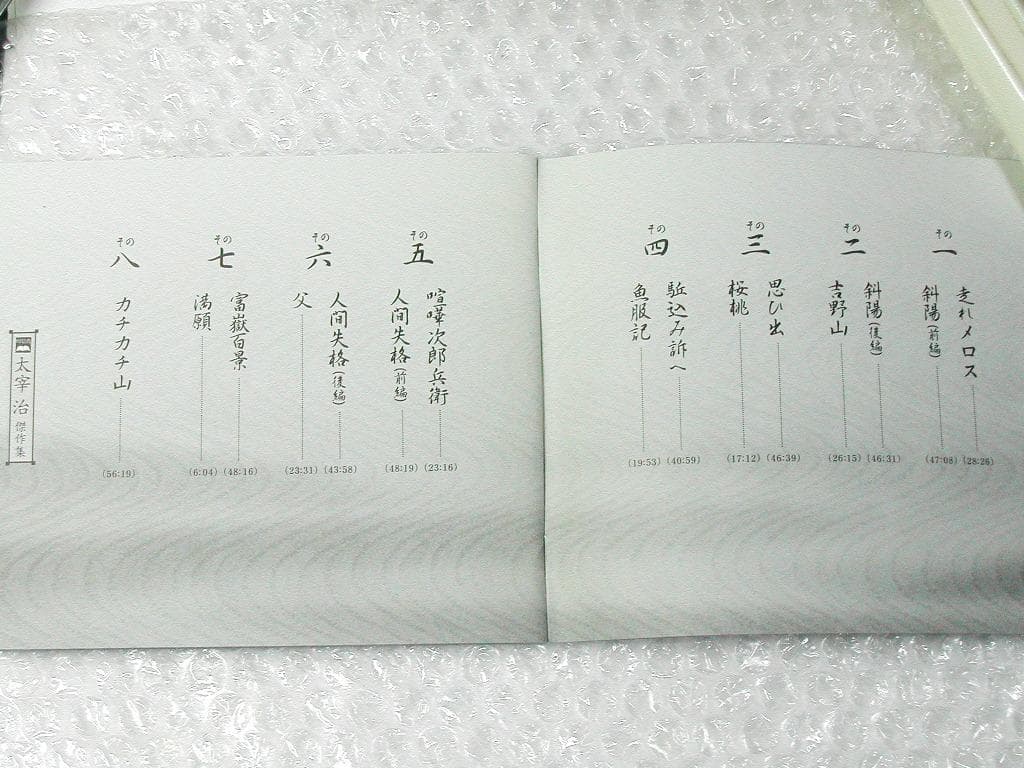 その一
走れメロス (28:26)
斜陽(前編) (47:08)
その二
斜陽(後編) (46:31)
吉野山 (26:15)
その三
思ひ出 (46:39)
桜桃 (17:12)
その四
駈込み訴へ (40:59)
魚服記 (19:53)
その五
喧嘩次郎兵衛 (23:16)
人間失格(前編) (48:19)
その六
人間失格(後編) (43:58)
父 (23:31)
その七
富嶽百景 (48:16)
満願 (6:04)
その八
カチカチ山 (56:19)
太宰治傑作集